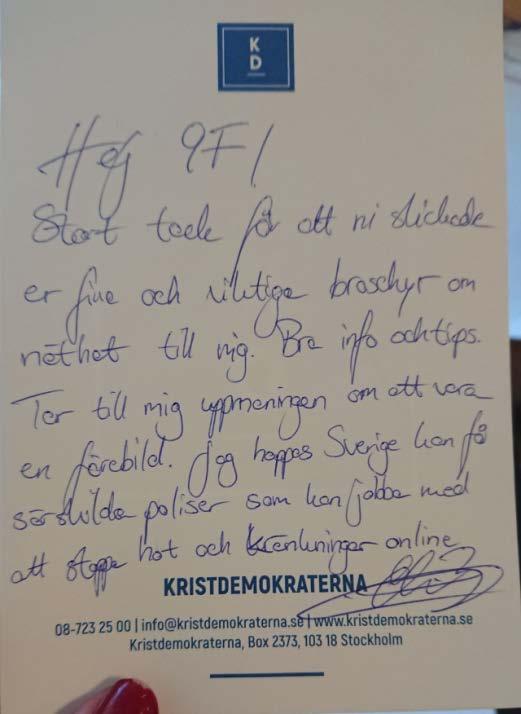 K
D
Hej 9F!
Stort tack för att ni skickade
er fina och viktiga broschyr om
näthat till mig. Bra info och tips.
Tar till mig uppmaningen om att vara
en förebild. Jag hoppas Sverige kan få
särskilda poliser som kan jobba med
att stoppa hot och kränkningar online
KRISTDEMOKRATERNA
08-723 25 00 | info@kristdemokraterna.se | www.kristdemokraterna.se
Kristdemokraterna, Box 2373, 103 18 Stockholm